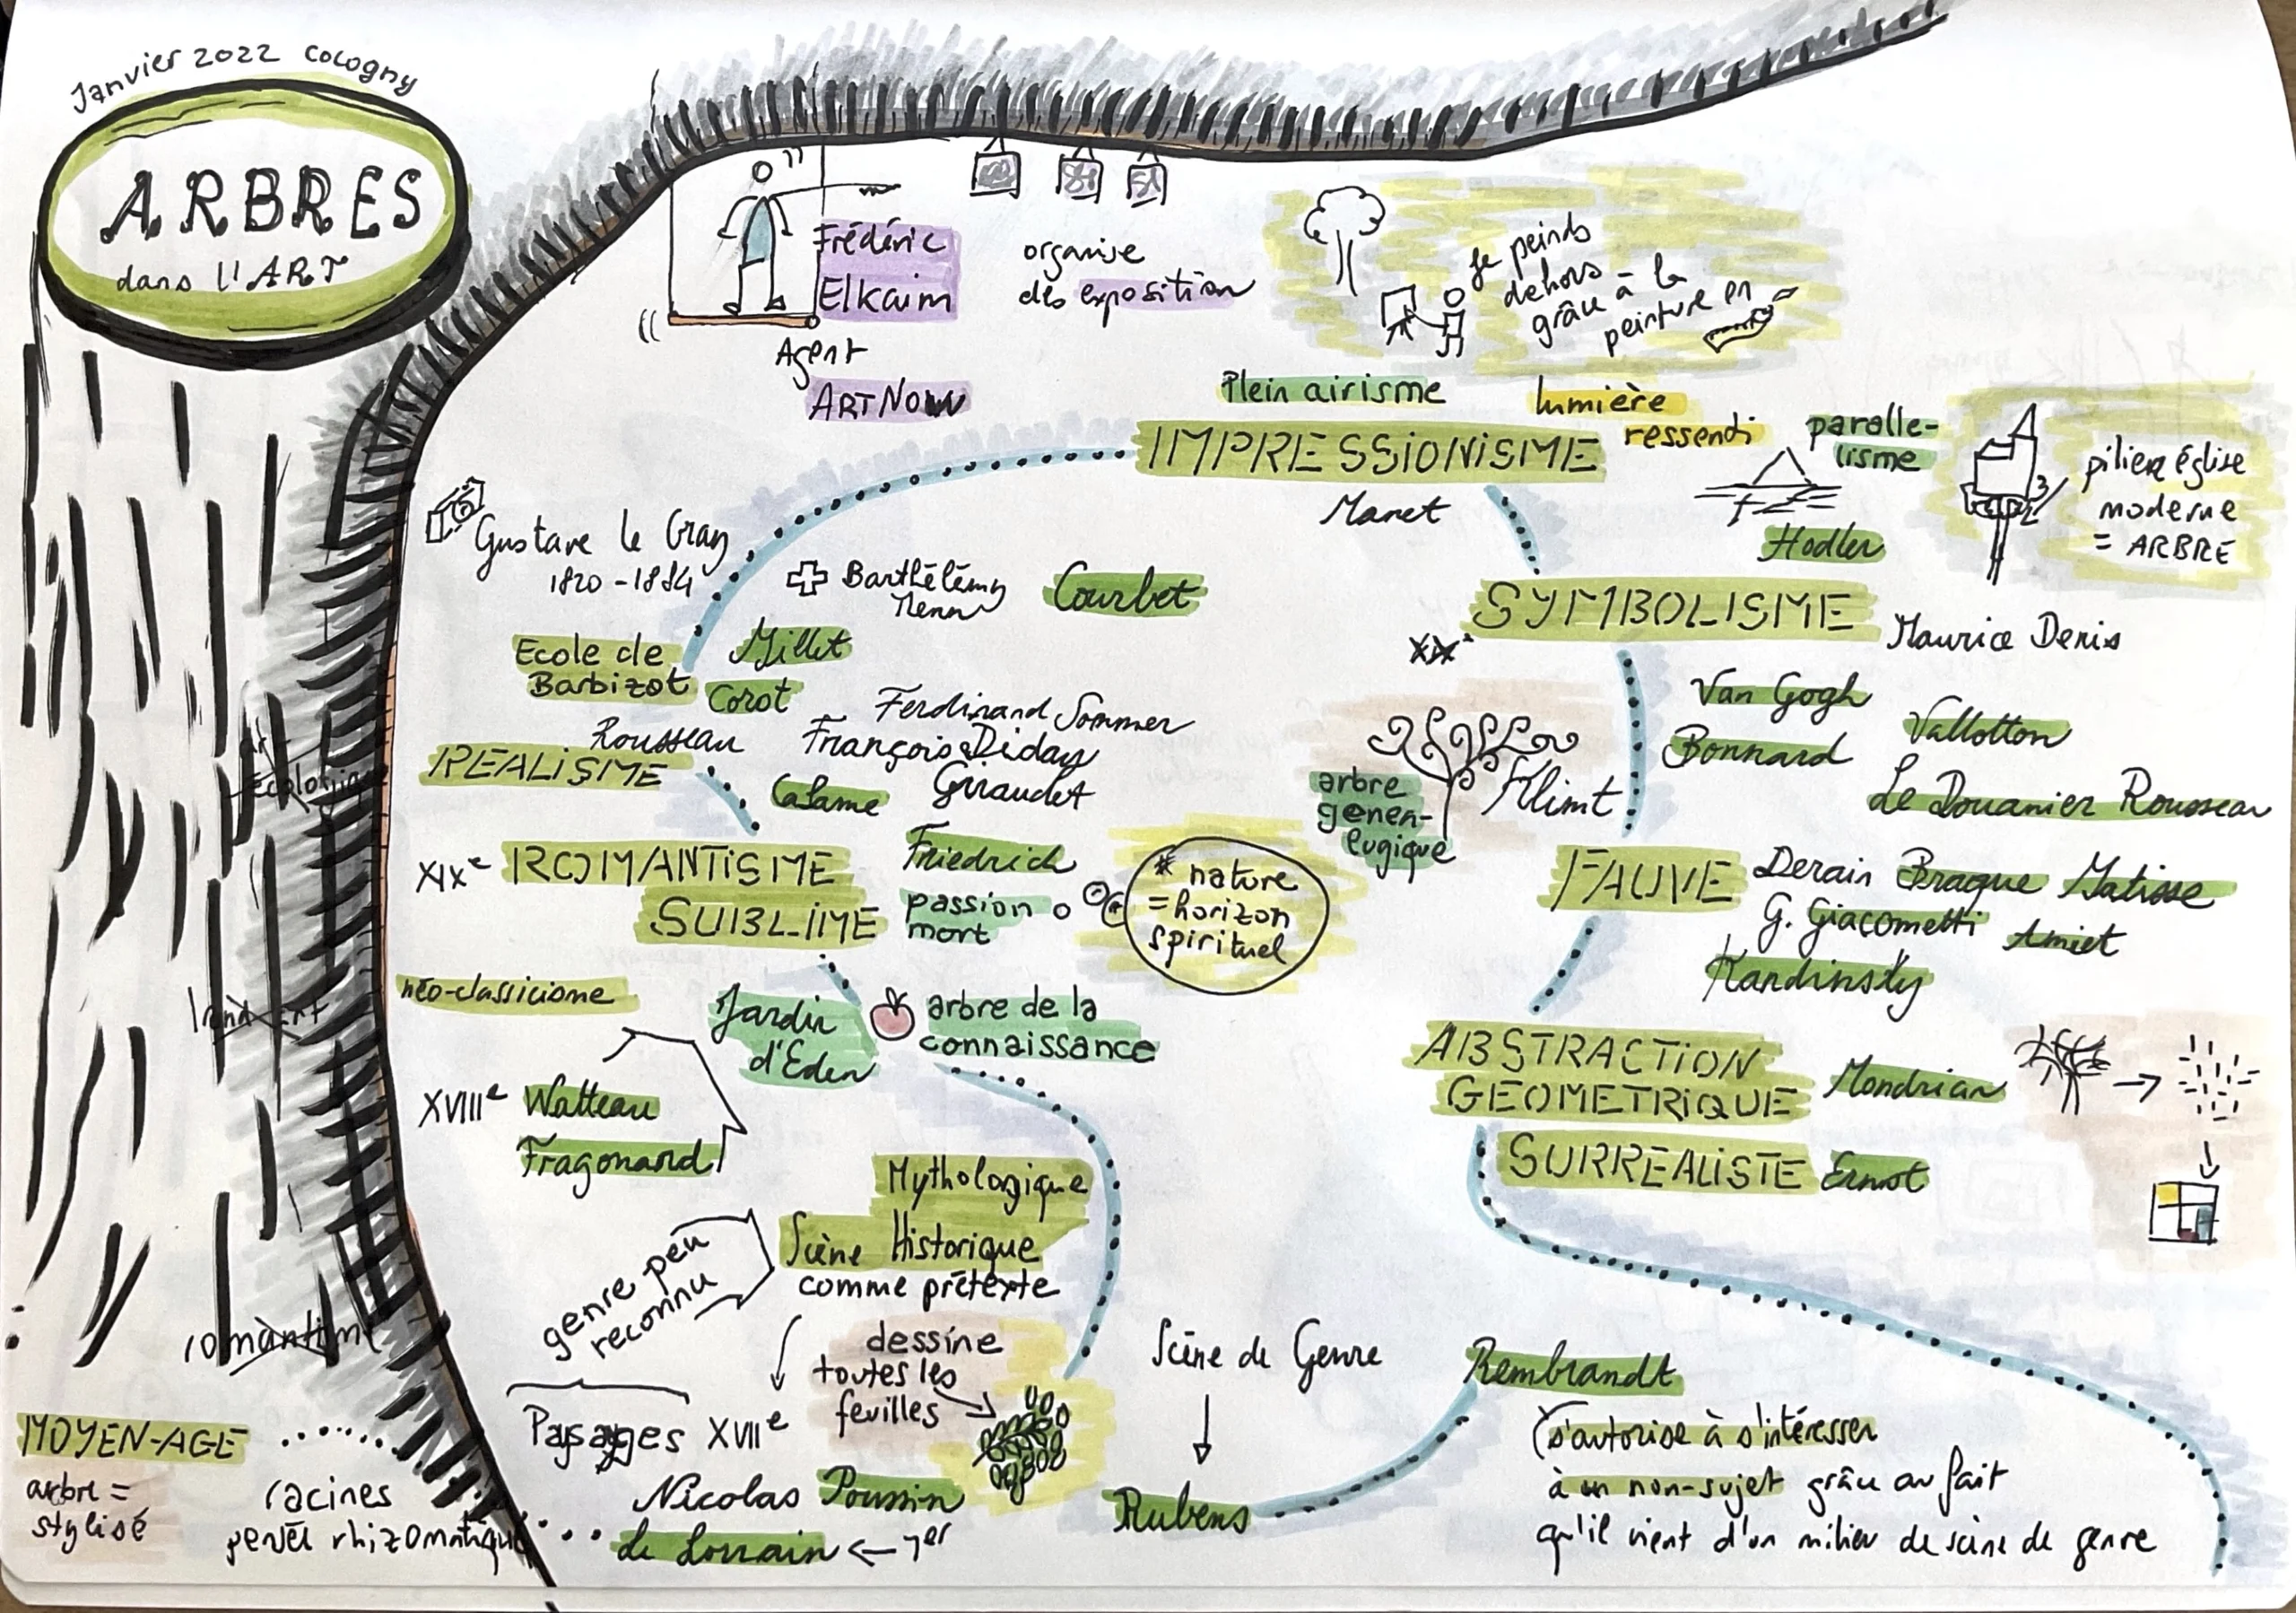 Janvier 2022 Cologny
ARBRES
dans l'ART
Frédéric
Elkaim
Agent
ARTNOW
organise
des exposition
je peinds
dehors
grâce à la
peinture en
Plein airisme
lumière
ressenti
IMPRESSIONISME
Manet
paralle-
lisme
Hodler
pilier église
moderne
= ARBRE
Gustave le Gray
1820 - 1884
Barthélémy
Menn
Courbet
Ecole de
Barbizot
Millet
Corot
Rousseau
Ferdinand Sommer
François Diday
Giraudet
REALISME
Calame
SYMBOLISME
XIXe
Maurice Denis
Van Gogh
Bonnard
Vallotton
Le Douanier Rousseau
arbre
genea-
lugique
Klimt
art
écologique
XIXe ROMANTISME
SUBLIME
Friedrich
passion
mort
* nature
= horizon
spirituel
FAUVE
Derain Braque Matisse
G. Giacometti Amiet
Kandinsky
néo-classicisme
Land Art
Jardin
d'Eden
arbre de la
connaissance
XVIIIe Watteau
Fragonard
ABSTRACTION
GEOMETRIQUE
Mondrian
SURREALISTE Ernst
Mythologique
Scène Historique
comme prétexte
genre peu
reconnu
dessine
toutes les
feuilles
Paysages XVIIe
Nicolas Poussin
Le Lorrain ← 1er
Scène de Genre
Rubens
Rembrandt
s'autorise à s'intéresser
à un non-sujet grâce au fait
qu'il vient d'un milieu de scène de genre
MOYEN-AGE
arbre =
stylisé
racines
rhizomatique